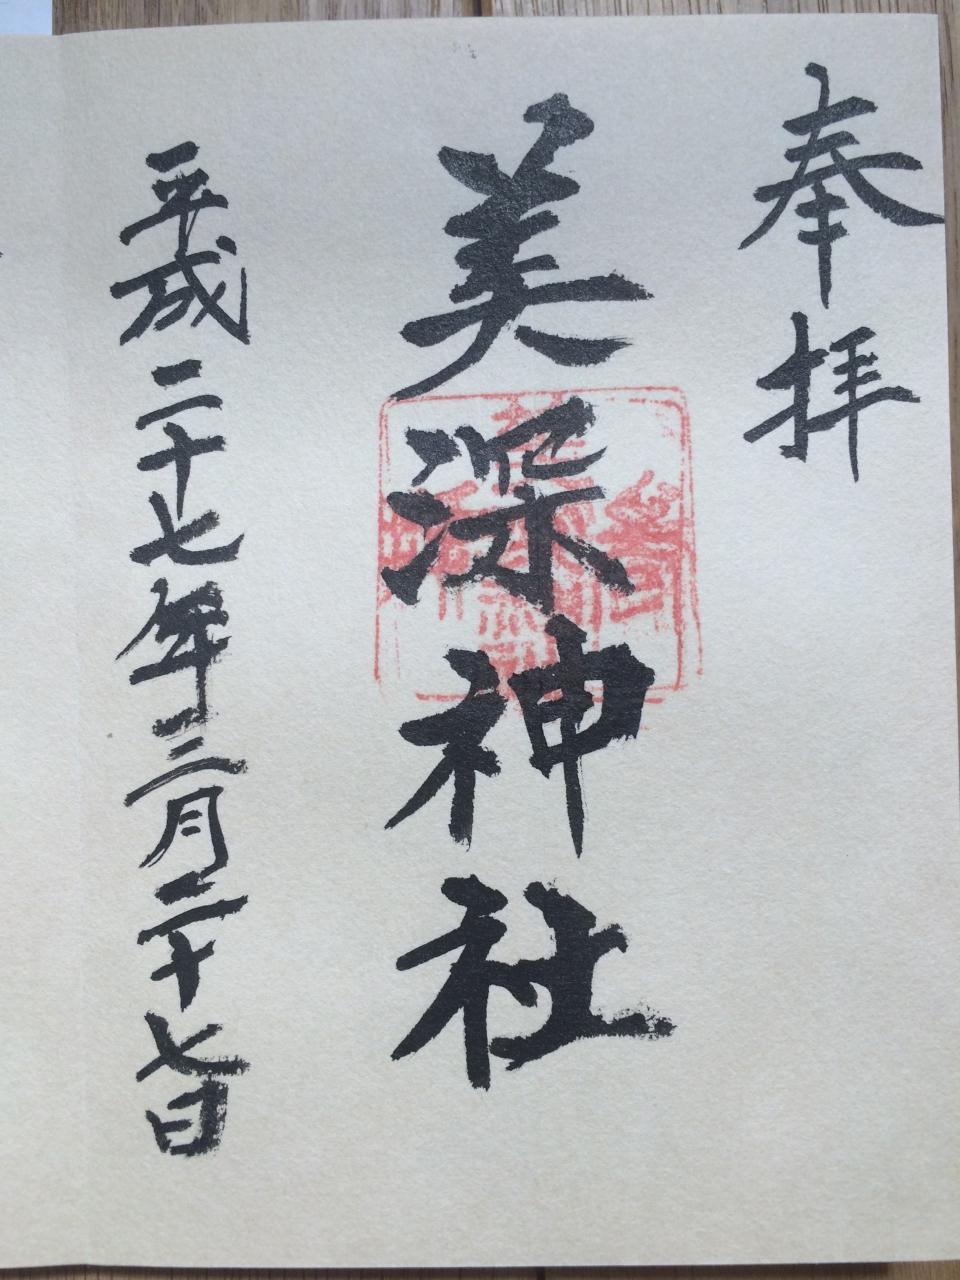 奉拝
美深神社
平成二十七年三月二十七日